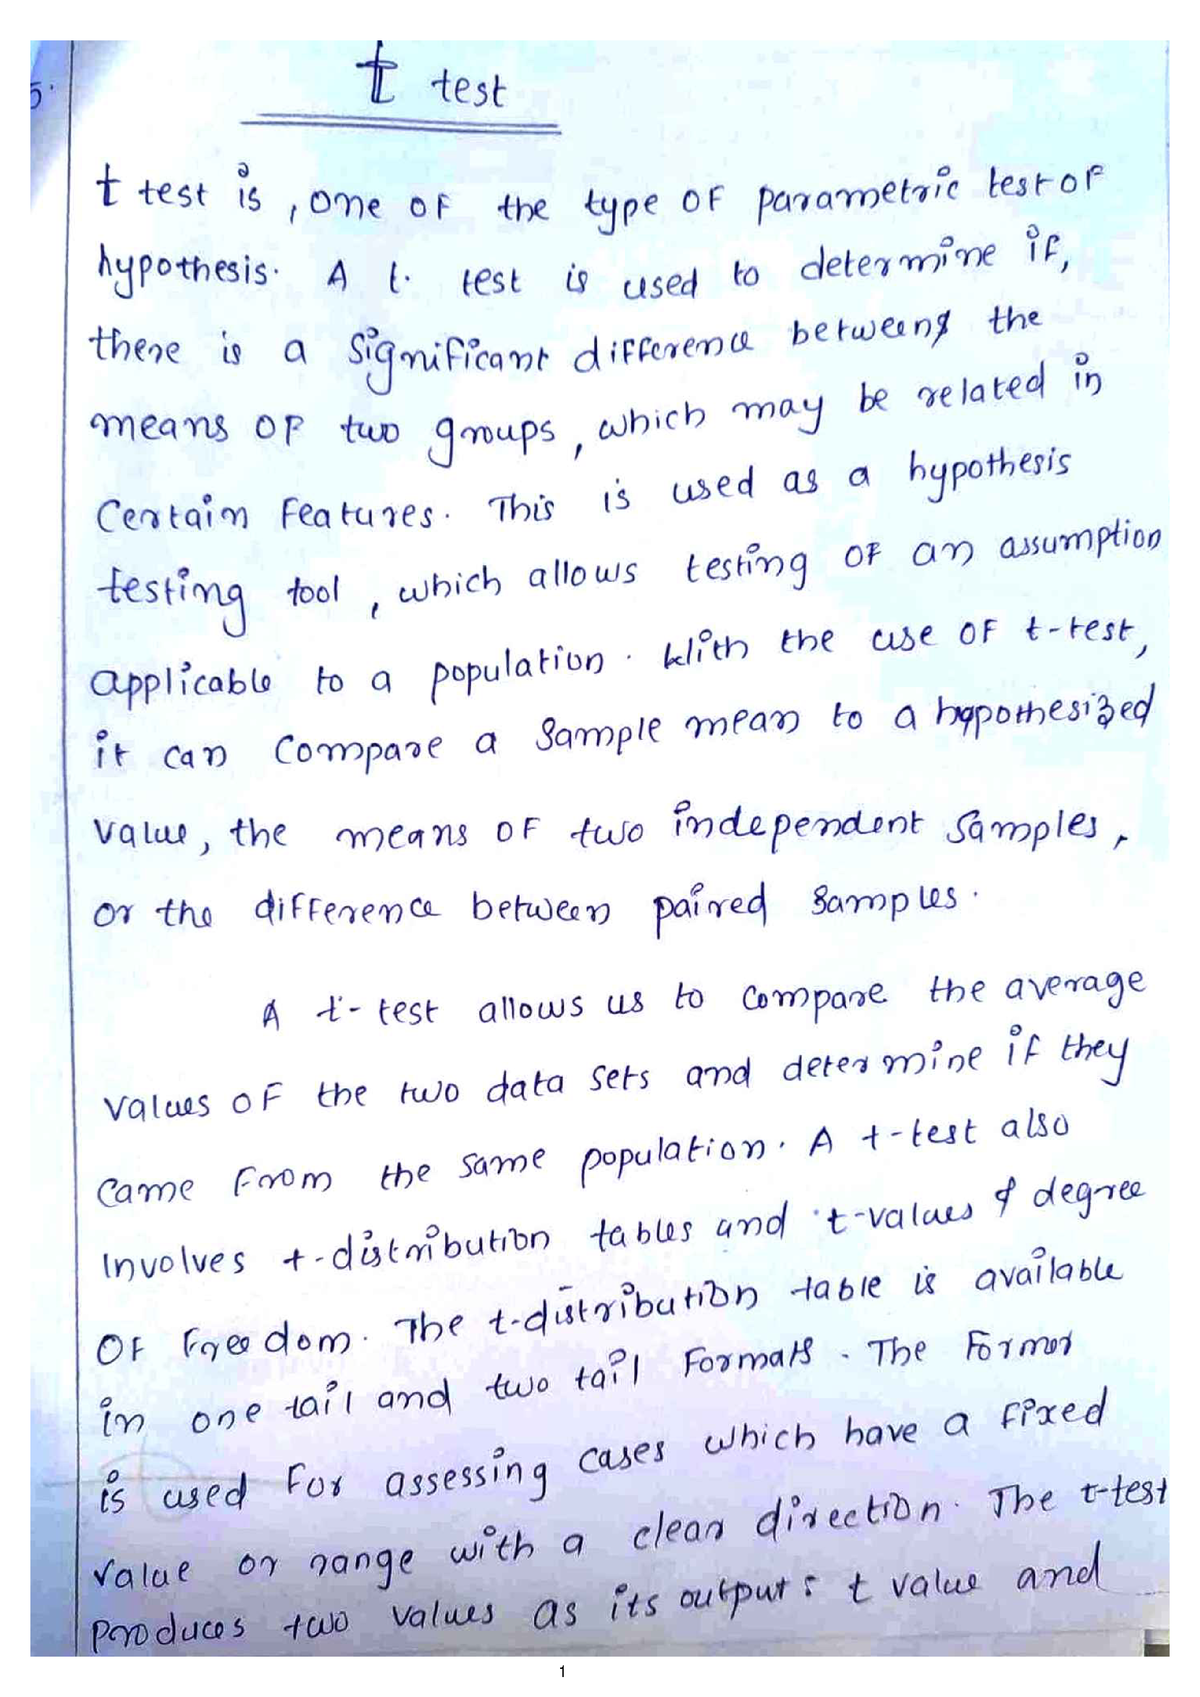 5.
t test
t test is, one of the type of parametric test of
hypothesis. A t. test is used to determine if,
there is a significant difference between the
means of two groups, which may be related in
Certain features. This is used as a hypothesis
testing tool, which allows testing of an assumption
applicable to a population. With the use of t-test,
it can compare a sample mean to a hypothesized
value, the means of two independent samples,
or the difference between paired samples.
A t-test allows us to compare the average
values of the two data sets and determine if they
came from the same population. A t-test also
Involves t-distribution tables and t-values & degree
of freedom. The t-distribution table is available
in one tail and two tail formats. The former
is used for assessing cases which have a fixed
value or range with a clear direction. The t-test
produces two values as its output: t value and
1